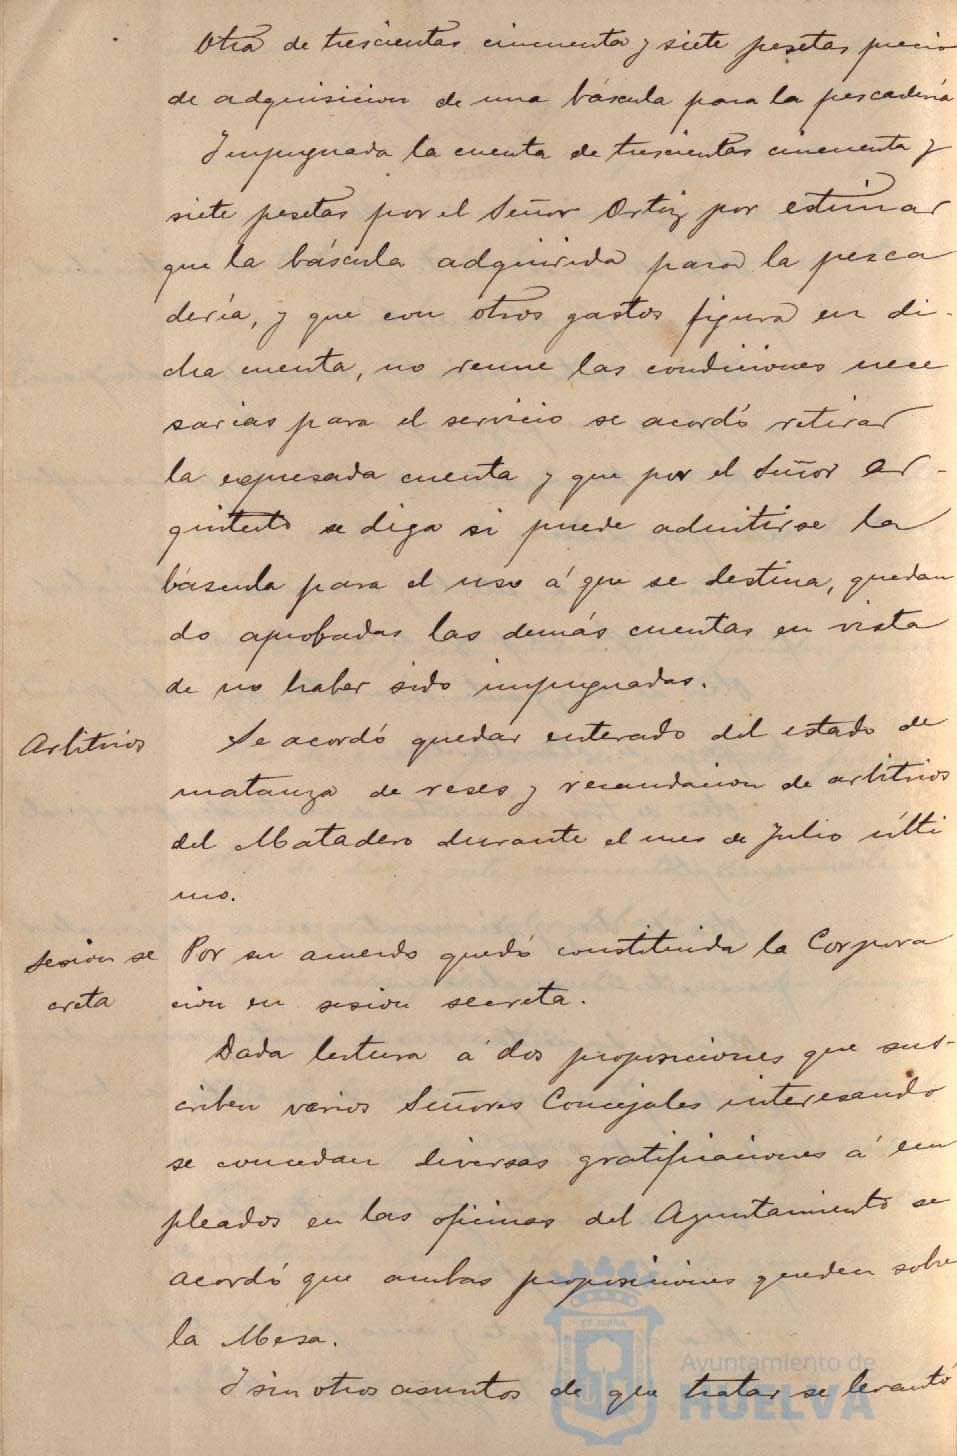 Otra de trescientas cincuenta y siete pesetas precio
de adquisicion de una báscula para la pescadería
Impugnada la cuenta de trescientas cincuenta y
siete pesetas por el Señor Ortiz por estimar
que la báscula adquirida para la pesca
dería, y que con otros gastos figura en di-
cha cuenta, no reune las condiciones nece
sarias para el servicio se acordó retirar
la expresada cuenta y que por el Señor ar-
quitecto se diga si puede admitirse la
báscula para el uso á que se destina, quedan
do aprobadas las demás cuentas en vista
de no haber sido impugnadas.
Arbitrios Se acordó quedar enterado del estado de
matanza de reses y recaudacion de arbitrios
del Matadero durante el mes de Julio últi
mo.
Sesion se Por su acuerdo quedó constituida la Corpora
creta cion en sesion secreta.
Dada lectura á dos proposiciones que sus-
criben varios Señores Concejales interesando
se concedan diversas gratificaciones á em
pleados en las oficinas del Ayuntamiento se
acordó que ambas proposiciones queden sobre
la Mesa.
Y sin otros asuntos de que tratar se levantó
Ayuntamiento de
HUELVA